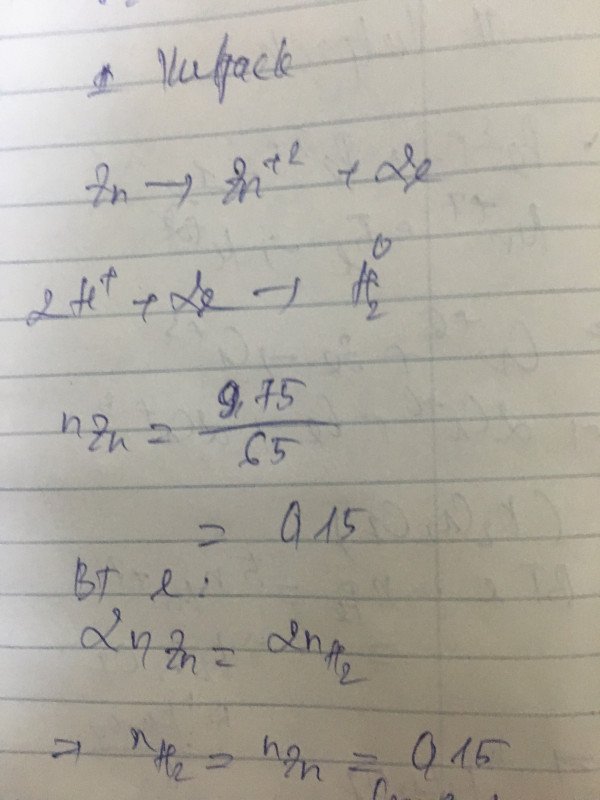 Zn → Zn⁺² + 2e
2H⁺ + 2e → H₂⁰
nZn = 9,75 / 65
= 0,15
BT e:
2nZn = 2nH₂
⇒ nH₂ = nZn = 0,15